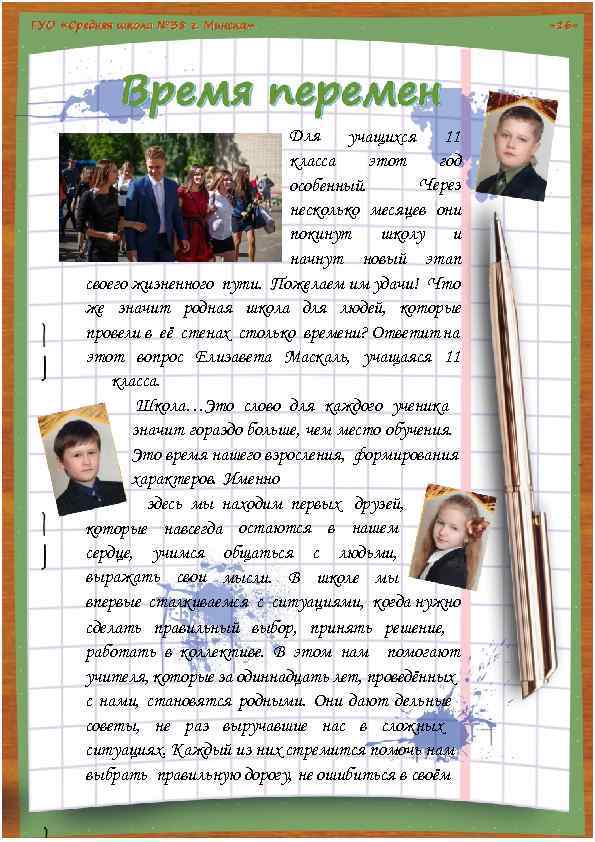 ГУО «Средняя школа №38 г. Минска»
-16-
Время перемен
Для учащихся 11
класса этот год
особенный. Через
несколько месяцев они
покинут школу и
начнут новый этап
своего жизненного пути. Пожелаем им удачи! Что
же значит родная школа для людей, которые
провели в её стенах столько времени? Ответит на
этот вопрос Елизавета Маскаль, учащаяся 11
класса.
Школа…Это слово для каждого ученика
значит гораздо больше, чем место обучения.
Это время нашего взросления, формирования
характеров. Именно
здесь мы находим первых друзей,
которые навсегда остаются в нашем
сердце, учимся общаться с людьми,
выражать свои мысли. В школе мы
впервые сталкиваемся с ситуациями, когда нужно
сделать правильный выбор, принять решение,
работать в коллективе. В этом нам помогают
учителя, которые за одиннадцать лет, проведённых
с нами, становятся родными. Они дают дельные
советы, не раз выручавшие нас в сложных
ситуациях. Каждый из них стремится помочь нам
выбрать правильную дорогу, не ошибиться в своём